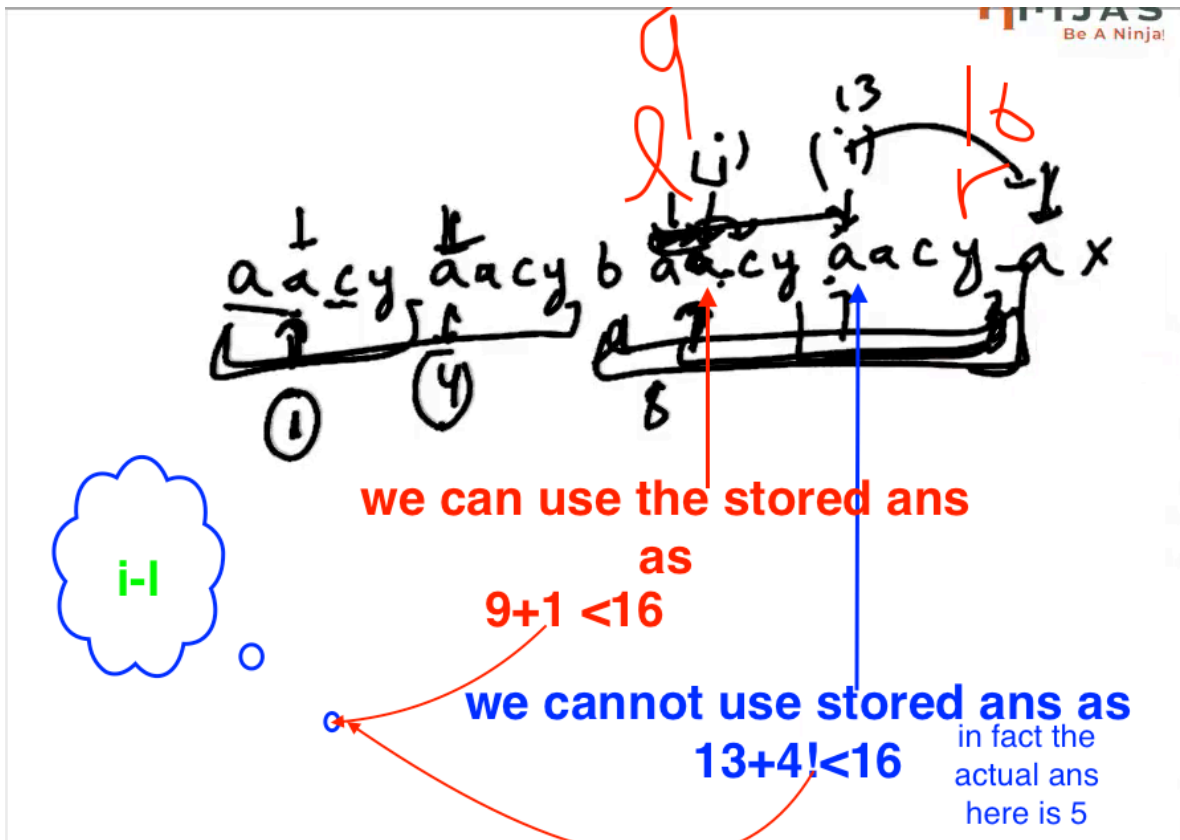 Be A Ninja!
9
l
(j)
13
(i)
16
r
a a c y a a c y b a a c y a a c y a x
1
4
8
we can use the stored ans
as
9+1 <16
i-l
we cannot use stored ans as
13+4!<16
in fact the
actual ans
here is 5